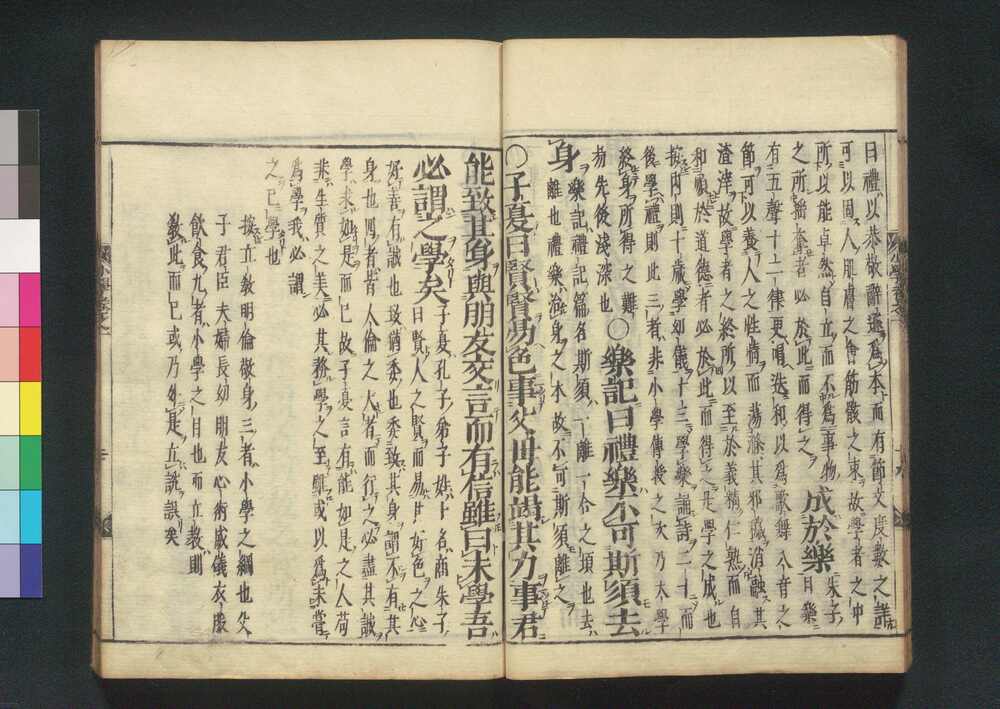 曰禮以恭敬辭遜爲本而有節文度數之詳
可以固人肌膚之會筋骸之束故學者之中
所以能卓然自立而不爲事物
之所搖奪者必於此而得之 成於樂 朱子曰樂
有五聲十二律更唱迭和以爲歌舞八音之
節可以養人之性情而蕩滌其邪穢消融其
渣滓故學者之終所以至於義精仁熟而自
和順於道德者必於此而得之是學之成也
按内則十歳學幼儀十三學樂誦詩二十而
後學禮則此三者非小學傳授之次乃大學
終身所得之難
易先後淺深也 ○樂記曰禮樂不可斯須去
身 樂記禮記篇名斯須一離一合之頃也去
離也禮樂治身之本故不可斯須離之
○子夏曰賢賢易色事父母能竭其力事君
能致其身與朋友交言而有信雖曰未學吾
必謂之學矣 子夏孔子弟子姓卜名商朱子
曰賢人之賢而易其好色之心
好善有誠也致猶委也委致其身謂不有其
身也四者皆人倫之大者而行之必盡其誠
學求如是而已故子夏言有能如是之人苟
非生質之美必其務學之至雖或以爲未嘗
爲學我必謂
之已學也
按立敎明倫敬身三者小學之綱也父
子君臣夫婦長幼朋友心術威儀衣服
飮食九者小學之目也而立敎則
敎此而已或乃外是立說誤矣